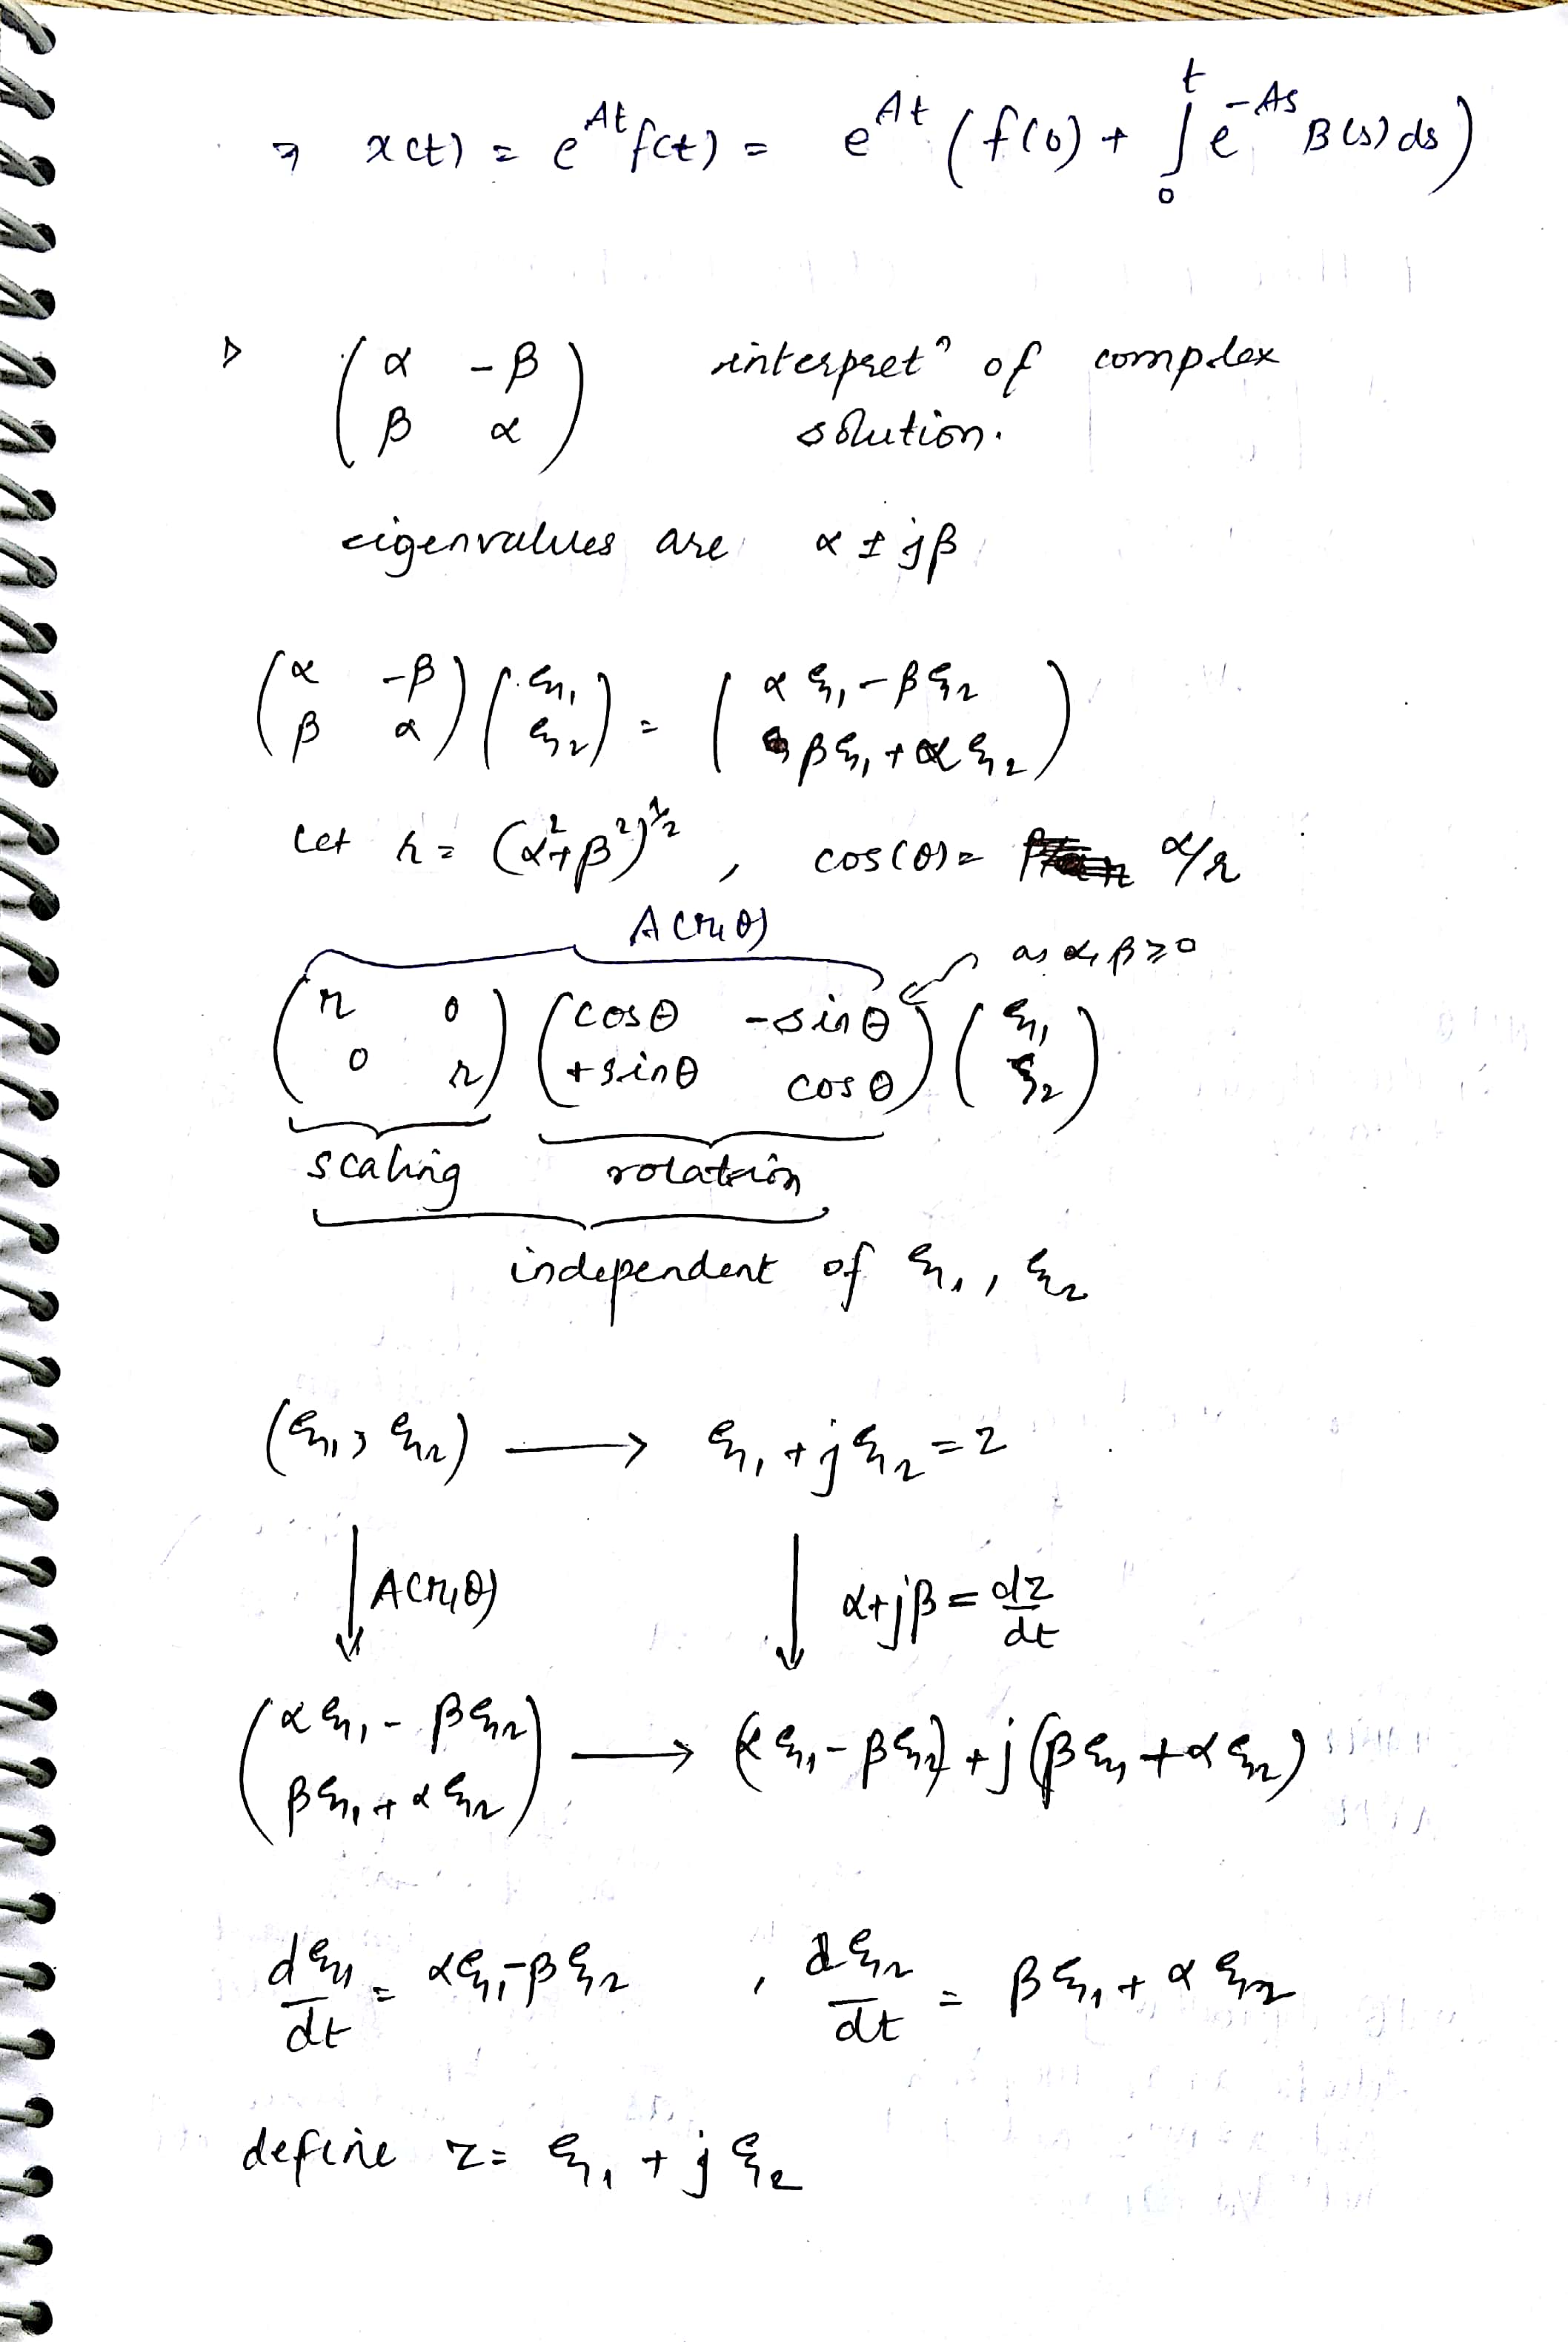 ⇒ x(t) = e^{At} f(t) = e^{At} ( f(0) + ∫_0^t e^{-As} B(s) ds )
▷ ( α -β ; β α ) interpretⁿ of complex
solution.
eigenvalues are α ± jβ
( α -β ; β α ) ( ξ₁ ; ξ₂ ) = ( αξ₁ - βξ₂ ; βξ₁ + αξ₂ )
Let r = (α² + β²)^{1/2} , cos(θ) = α/r
A(r,θ)
as α, β ≥ 0
( r 0 ; 0 r ) ( cosθ -sinθ ; +sinθ cosθ ) ( ξ₁ ; ξ₂ )
scaling rotation
independent of ξ₁, ξ₂
(ξ₁, ξ₂) ⟶ ξ₁ + jξ₂ = z
↓ A(r,θ) ↓ α+jβ = dz/dt
( αξ₁ - βξ₂ ; βξ₁ + αξ₂ ) ⟶ (αξ₁ - βξ₂) + j(βξ₁ + αξ₂)
dξ₁/dt = αξ₁ - βξ₂ , dξ₂/dt = βξ₁ + αξ₂
define z = ξ₁ + jξ₂